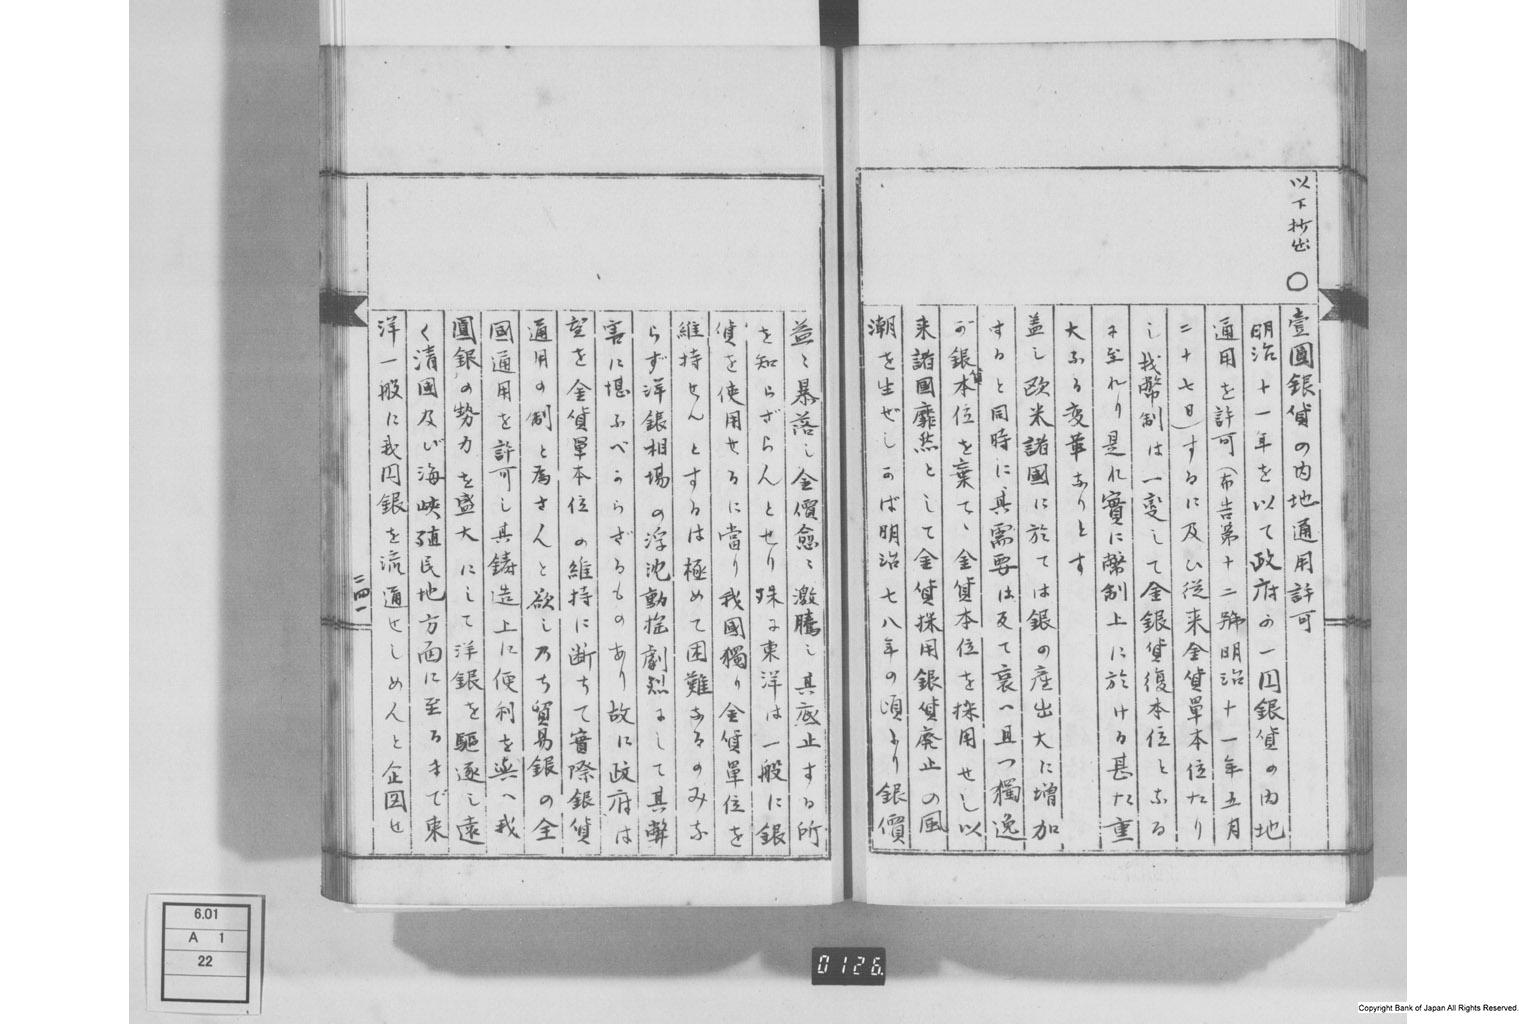 以下抄出
○
壹圓銀貨の内地通用許可
明治十一年を以て政府の一円銀貨の内地
通用を許可(布告第十二號明治十一年五月
二十七日)するに及ひ從来金貨單本位たり
し我幣制は一変して金銀貨復本位となる
に至れり是れ實に幣制上に於ける甚た重
大なる変革なりとす
盖し欧米諸國に於ては銀の産出大に増加
すると同時に其需要は反て衰へ且つ獨逸
が銀貨本位を棄て、金貨本位を採用せし以
来諸國靡然として金貨採用銀貨廃止の風
潮を生ぜしかば明治七八年の頃より銀價
益々暴落し金價愈々激騰し其底止する所
を知らざらんとせり殊に東洋は一般に銀
貨を使用せるに當り我國獨り金貨單位を
維持せんとするは極めて困難なるのみな
らず洋銀相場の浮沈動揺劇烈にして其弊
害に堪ふべからざるものあり故に政府は
望を金貨單本位の維持に断ちて實際銀貨
通用の制と為さんと欲し乃ち貿易銀の全
國通用を許可し其鋳造上に便利を與へ我
圓銀の勢力を盛大にして洋銀を驅逐し遠
く清國及び海峽殖民地方面に至るまで東
洋一般に我円銀を流通せしめんと企図せ
二四一
6.01
A 1
22
0126.
Copyright Bank of Japan All Rights Reserved.